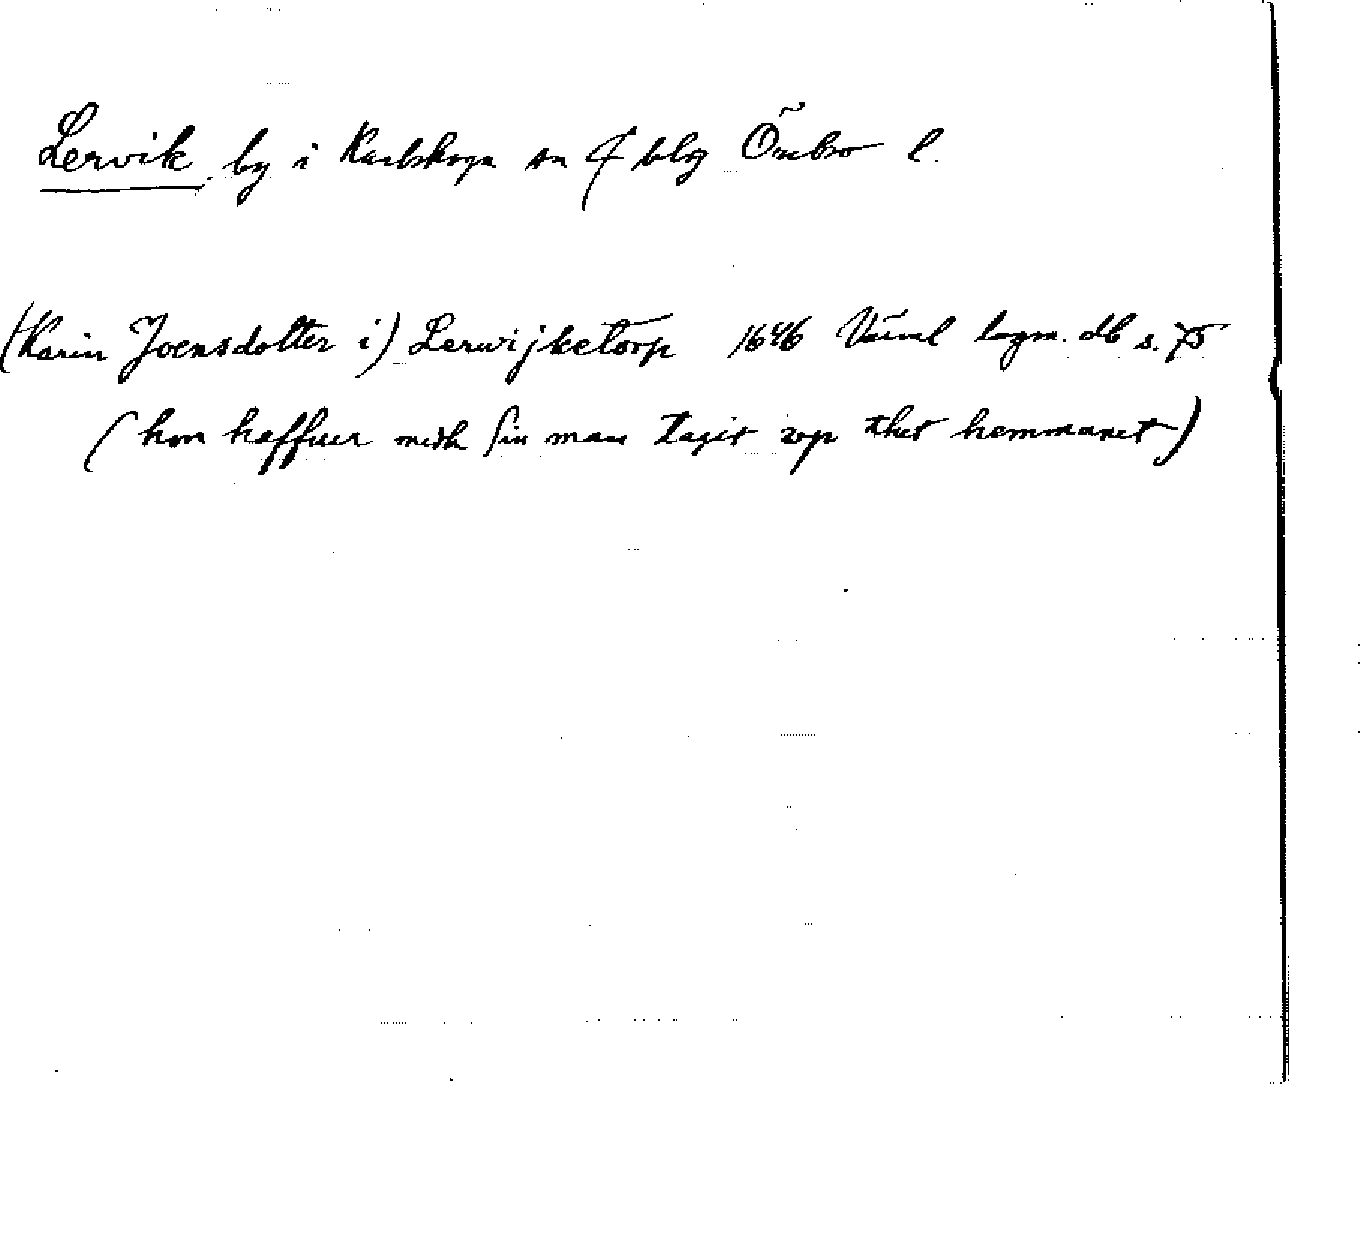 Lervik, by i Karlskoga sn & blg Örebro l.
(Karin Joensdotter i) Lerwijketorp 1646 Värml lagm. db s. 75
(hon haffuer medh sin man tagit vp thet hemmanet)